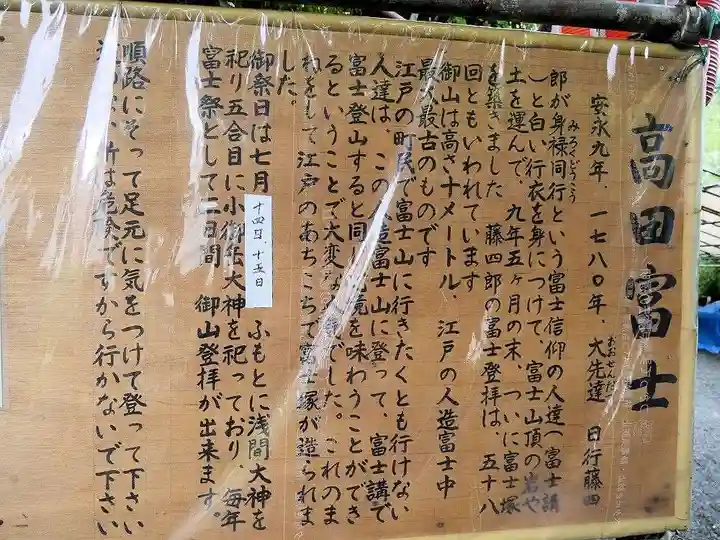 高田富士
安永九年、一七八〇年、大先達 日行藤四
おおせんだつ
郎が身禄同行という富士信仰の人達(富士講
みろくどうこう
)と白い行衣を身につけて、富士山頂の岩や
土を運んで、九年五ヶ月の末、ついに富士塚
を築きました 藤四郎の富士登拝は、五十八
回ともいわれています
御山は高さ十メートル、江戸の人造富士中
最大最古のものです
江戸の町民で富士山に行きたくとも行けない
人達は、この人造富士山に登って、富士講で
富士登山すると同 境を味わうことができ
るということで大変な 気でした。これのま
ねをして江戸のあちこちで富士塚が造られま
した。
御祭日は七月十四日、十五日 ふもとに浅間大神を
祀り五合目に小御岳大神を祀っており、毎年
富士祭として二日間 御山登拝が出来ます。
順路にそって足元に気をつけて登って下さい
所は危険ですから行かないで下さい